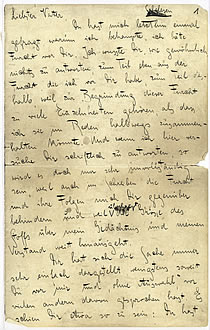 1
Liebster Vater
Du hast mich letzthin einmal
gefragt warum ich behaupte ich hätte
Furcht vor Dir. Ich wusste Dir wie gewöhnlich
nichts zu antworten zum Teil eben aus der
Furcht die ich vor Dir habe zum Teil des
halb weil zur Begründung dieser Furcht
zu viele Einzelnheiten gehören als dass
ich sie im Reden halbwegs zusammen-
halten könnte. Und wenn ich hier ver-
suche Dir schriftlich zu antworten so
wird es doch nur sehr unvollständig
sein weil auch im Schreiben die Furcht
und ihre Folgen mich Dir gegenüber
behindern und weil Grösse des
Stoffs über mein Gedächtnis und meinen
Verstand weit hinausgeht.
Dir hat sich die Sache immer
sehr einfach dargestellt wenigstens soweit
Du vor mir und ohne Auswahl vor
vielen andern davon gesprochen hast. Es
schien Dir etwa so zu sein: Du hast